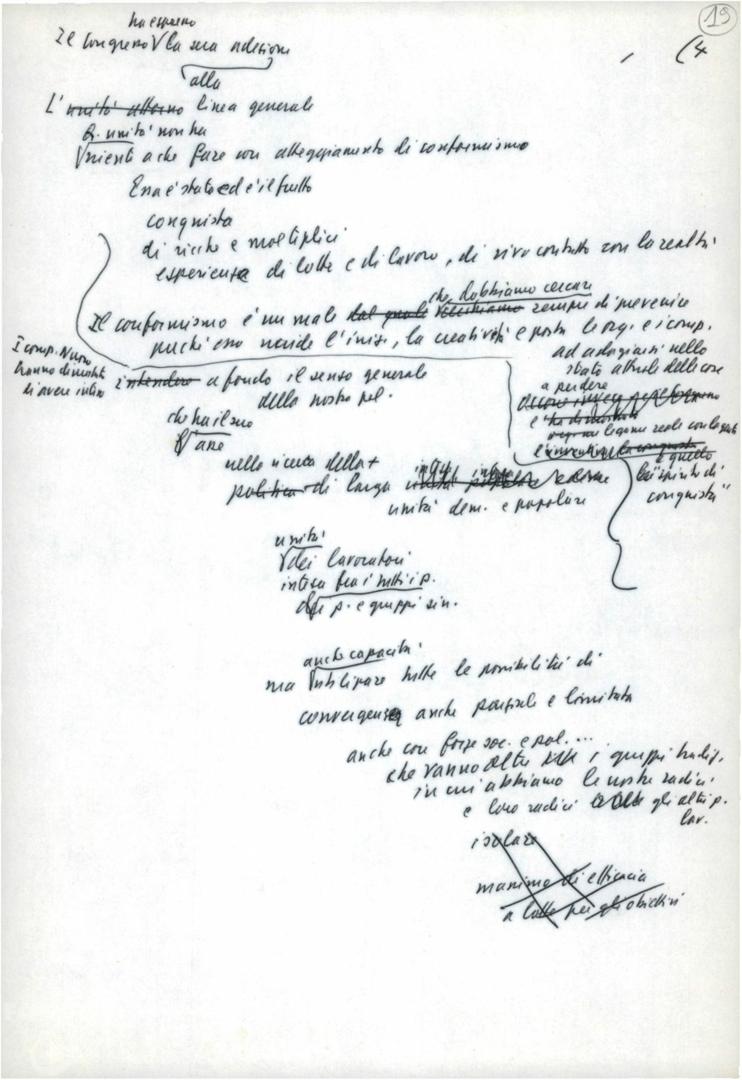 19
(4
ha espresso
Il Congresso la sua adesione
alla
L'unità attorno linea generale
Q. unità non ha
niente a che fare con atteggiamento di conformismo
Essa è stato ed è il frutto
conquista
di ricche e molteplici
esperienze di lotte e di lavoro, di vivo contatto con la realtà
che dobbiamo cercare
Il conformismo è un male dal quale sempre di prevenire
perché esso uccide l'iniz., la creatività e porta le org. e i comp.
ad adagiarsi nello
stato attuale delle cose
a perdere
legame reale con la
è quello
lo "spirito di
conquista"
I comp.
hanno dimostrato
di avere inteso
intendere a fondo il senso generale
della nostra pol.
che ha il suo
asse
nella ricerca della +
politica di larga unità
unità dem. e popolare
unità
dei lavoratori
intesa fra i tutti i p.
di p. e gruppi sin.
anche capacità
ma utilizzare tutte le possibilità di
convergenza anche parziale e limitata
anche con forze soc. e pol....
che vanno oltre i gruppi tradiz.
in cui abbiamo le nostre radici
e loro radici gli altri p.
lav.
isolare
massimo di efficacia
a lotte per gli obiettivi